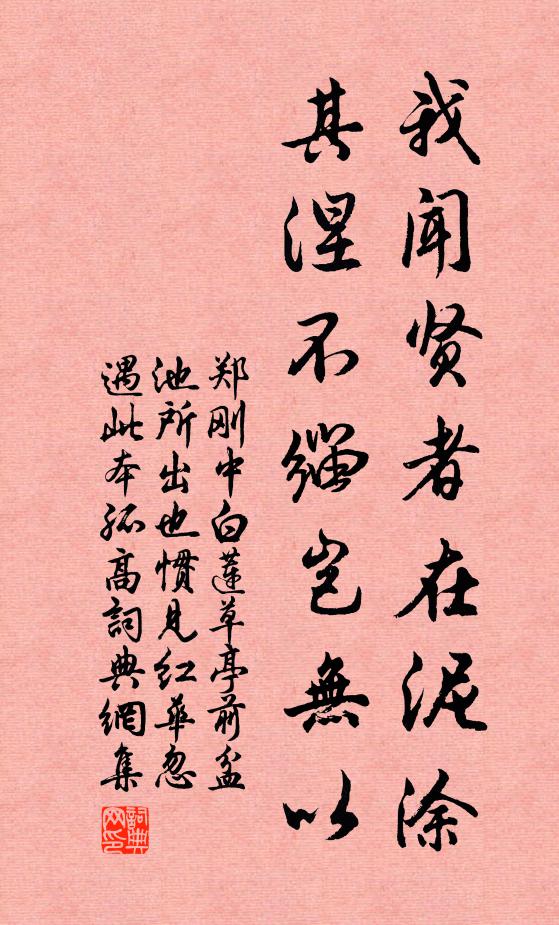 我闻贤者在泥涂
其涅不缁岂無以
郑刚中白蓮草亭前盆
池所出也慣見红華忽
遇此本孤高詞典網集
詞典网印